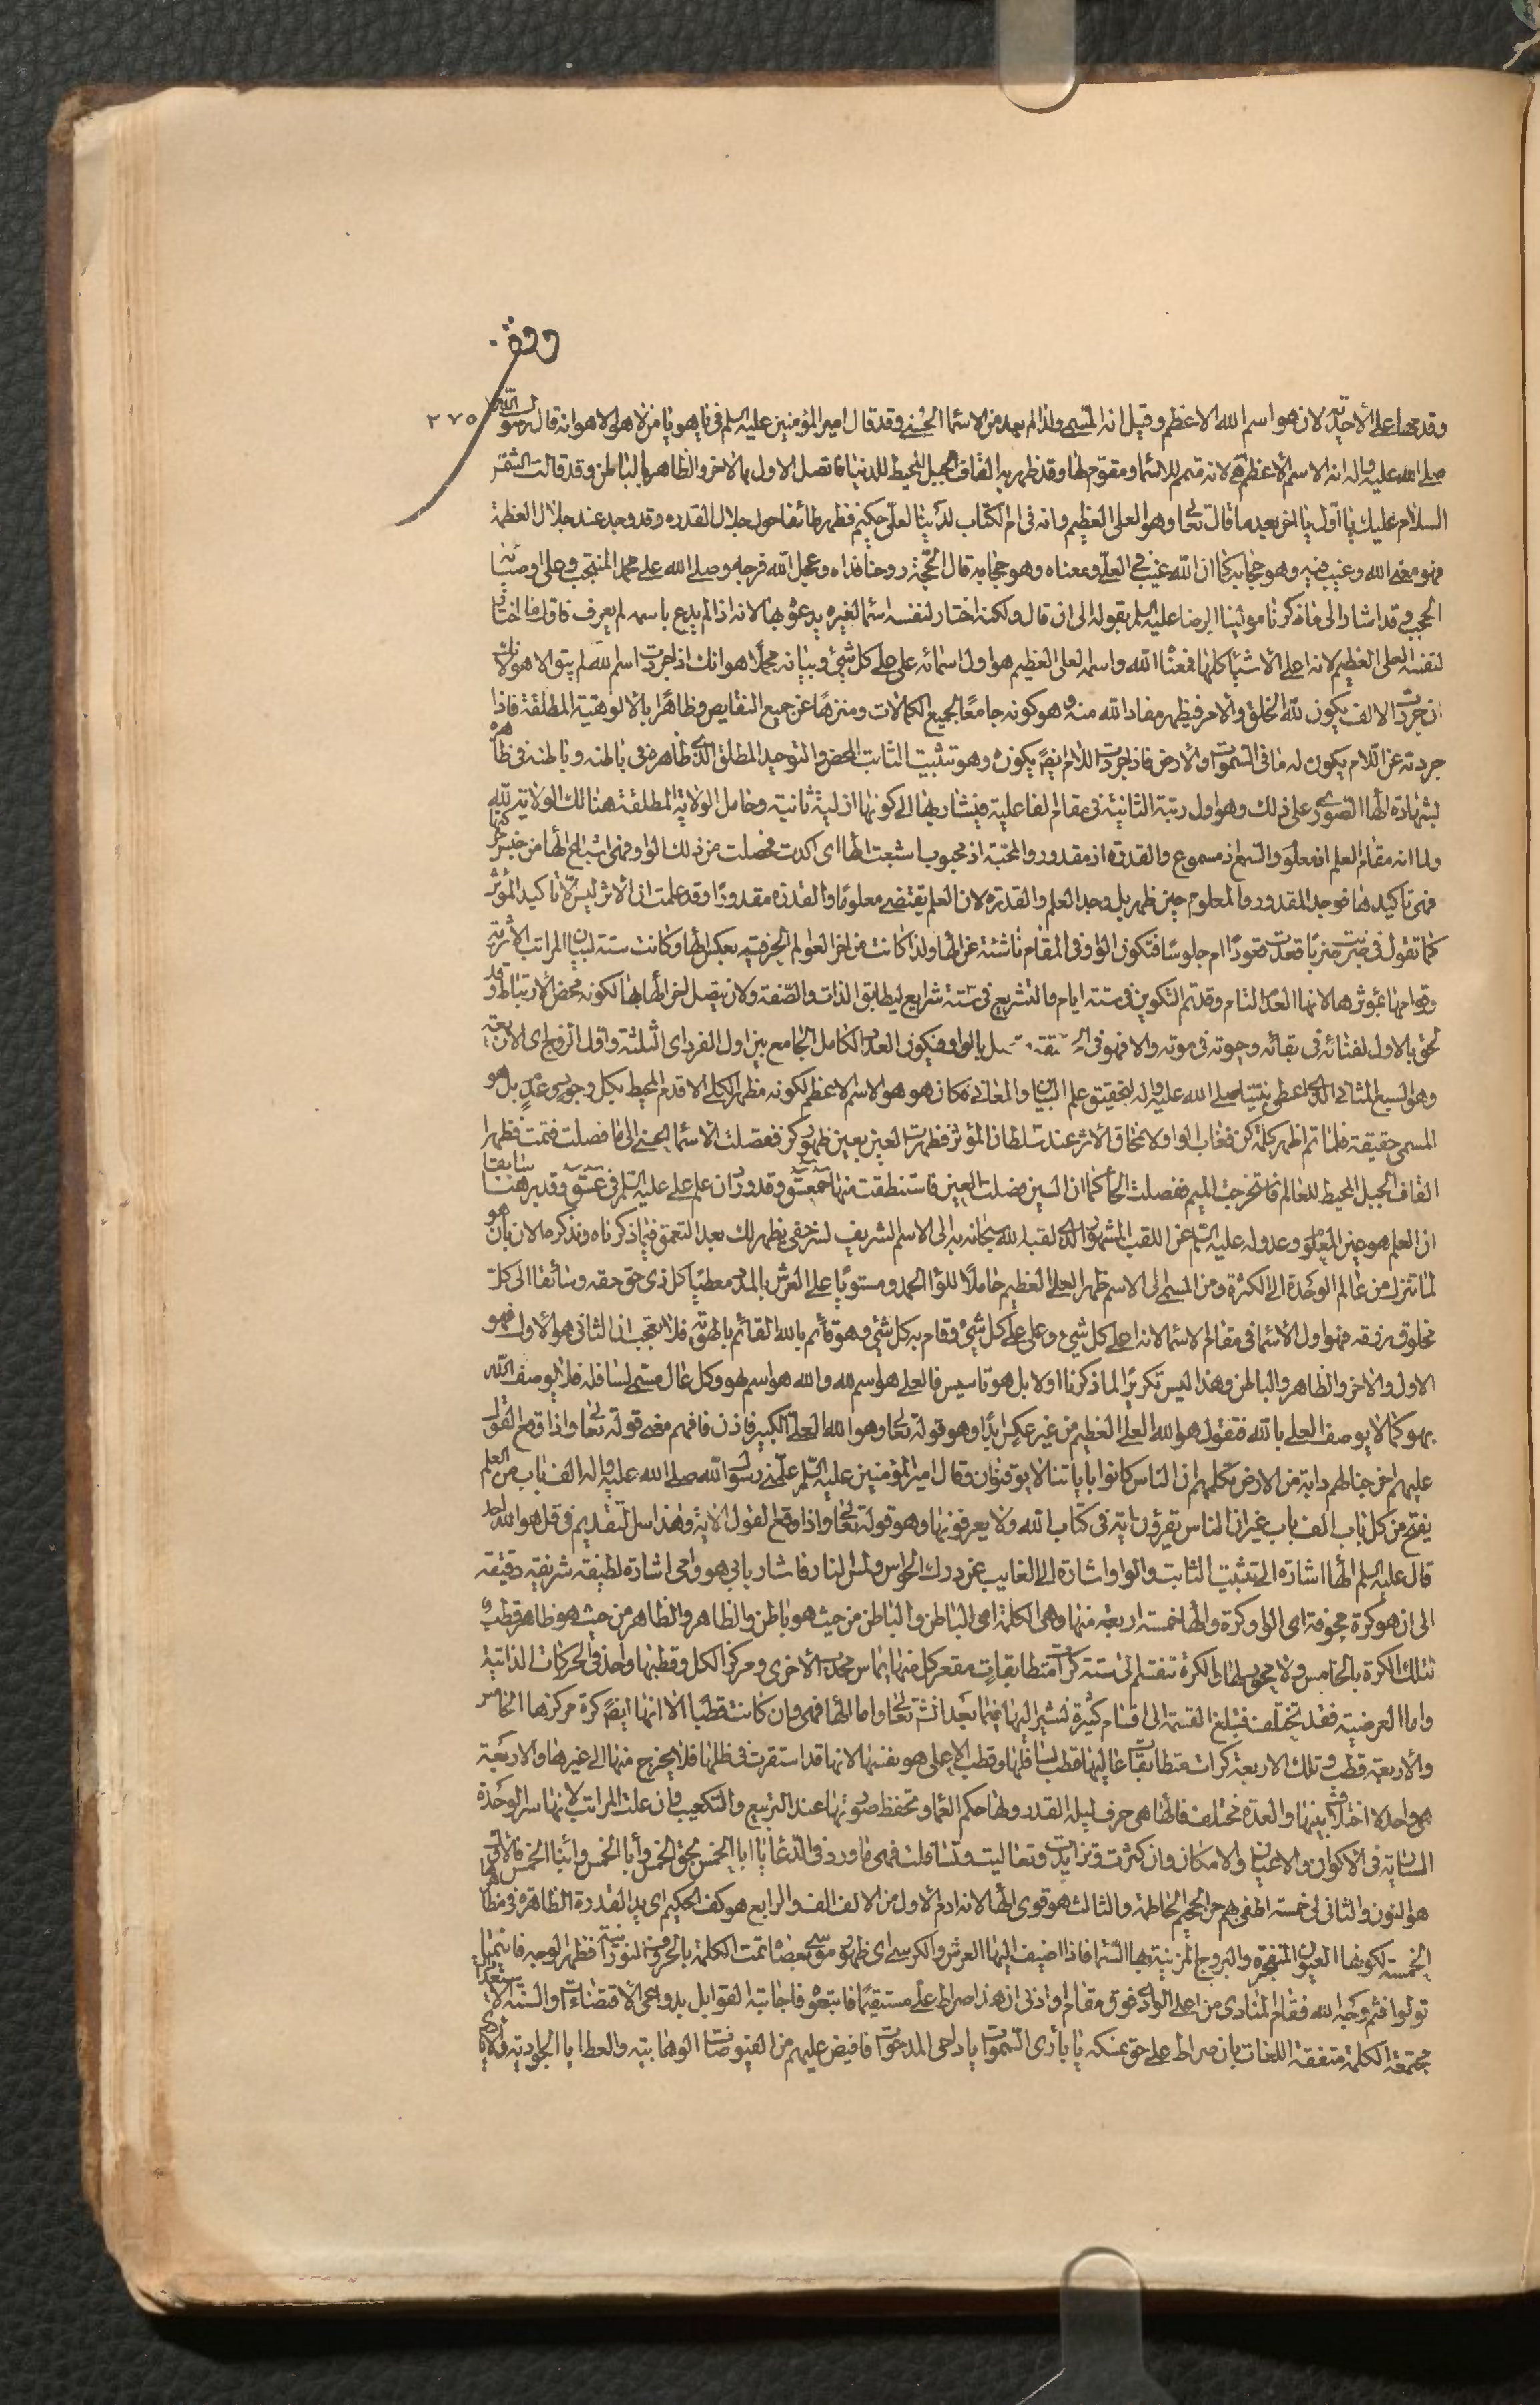 وقف
٢٧٥
وقد على الأحدية لان هو اسم الله الاعظم وقيل انه المسمى ولذا لم يعد من الاسماء الحسنى وقد قال امير المؤمنين عليه السلم في يا هو يا من لا هو الا هو انه قال رسول الله
صلى الله عليه واله انه الاسم الأعظم لانه متمم للاسماء ومقوم لها وقد ظهر به القاف الجبل المحيط للدنيا فاتصل الاول بالاخر والظاهر بالباطن وقد قالت الشمس
السلام عليك يا اول يا اخر بعد ما قال تعالى وهو العلي العظيم وانه في ام الكتاب لدينا لعلي حكيم فظهر طائفا حول جلال القدرة وقد وجد عند جلال العظمة
فهو معنى الله وغيب فيه وهو حجابه كما ان الله غيب في العلي ومعناه وهو حجابه قال الحجة روحنا فداه وعجل الله فرجه وصلى الله على محمد المنتجب وعلى اوصيائه
الحجب وقد اشار الى ما ذكرنا مولينا الرضا عليه السلم بقوله الى ان قال ولكنه اختار لنفسه اسماء لغيره يدعوه بها لانه اذا لم يدع باسمه لم يعرف فاول ما اختار
لنفسه العلي العظيم لانه اعلى الاشياء كلها فمعناه الله واسمه العلي العظيم هو اول اسمائه علا على كل شيء وبيانه مجملا هو انك اذا جردت اسم الله لم يبق الا هو لانك
ان جردت الالف يكون لله الخلق والامر فيظهر مفاد الله منه وهو كونه جامعا لجميع الكمالات ومنزها عن جميع النقايص وظاهرا بالالوهية المطلقة فاذا
جردته عن اللام يكون له ما في السموات والأرض فاذا جردت اللام ايضا يكون ه وهو تثبيت الثابت المحض والتوحيد المطلق الذي ظاهره في باطنه وباطنه في ظاهره
بشهادة الهاء الصوري على ذلك وهو اول رتبة الثانية في مقام الفاعلية فيشار بها الى كونها ازلية ثانية وحامل الولاية المطلقة هنالك الولاية لله
ولما انه مقام العلم اذ معلوم والسمع اذ مسموع والقدرة اذ مقدور والمحبة اذ محبوب اشبعت الهاء اي اكدت فحصلت من ذلك الواو فهي اشباع الهاء من جنس حركتها
فهي تاكيدها فوجد المقدور والمعلوم حين ظهر بل وجد العلم والقدرة لان العلم يقتضي معلوما والقدرة مقدورا وقد علمت ان الاثر ليس الا تاكيد المؤثر
كما تقول في ضربت ضربا قعدت قعودا ام جلوسا فتكون الواو في المقام ناشئة عن الهاء ولذا كانت من اخر العوالم الحرفية بعكس الهاء وكانت ستة لبيان المراتب الأثرية
وقوامها بمؤثرها لانها العدد التام وقد تم التكوين في ستة ايام والتشريع في ستة شرايع ليطابق الذات والصفة ولان يتصل اخر الهاء بها لكونه محض الارتباط وقد
لحق بالاول لفنائه في بقائه وحيوته في موته والا فهو في بالواو فيكون العدد الكامل الجامع بين اول الفرد اي الثلثة واول الزوج اي الاربعة
وهو السبع المثاني الذي اعطي نبينا صلى الله عليه واله لتحقيق علم البيان والمعاني فكان هو هو الاسم الاعظم لكونه مظهر الكلي الاقدم المحيط بكل وجود وعدم بل هو
المسمى حقيقة فلما تم اظهر كلمة كن فغاب الواو لانمحاق الاثر عند سلطان المؤثر فظهرت العين بعين ظهور كن ففصلت الاسماء الحسنى الى ما فصلت فتمت فظهر
القاف الجبل المحيط للعالم فاستخرجت الميم ففصلت الحاء كما ان السين فصلت العين فاستنطقت منها حمعسق وقد ورد ان علم علي عليه السلم في عسق وقد برهنا سابقا
ان العلم هو عين المعلوم وعدوله عليه السلم عن اللقب المشهور الذي لقبه الله سبحانه به الى الاسم الشريف لسر خفي يظهر لك بعد التعمق فيما ذكرناه ونذكره الان بان هو
لما تنزل من عالم الوحدة الى الكثرة ومن المسمى الى الاسم ظهر العلي العظيم حاملا للواء الحمد ومستويا على العرش بالمدد معطيا كل ذي حق حقه وسائقا الى كل
مخلوق رزقه فهو اول الاسماء في مقام الاسماء لانه اعلى كل شيء وعلي على كل شيء وقام به كل شيء وهو قائم بالله القائم بالهوية فلا تعجب ان الثاني هو الاول فهو
الاول والاخر والظاهر والباطن وهذا ليس تكريرا لما ذكرنا اولا بل هو تاسيس فالعلي هو اسم الله والله هو اسم لهو وكل عال مسمى لسافله فلا يوصف الله
بهو كما لا يوصف العلي بالله فتقول هو الله العلي العظيم من غير عكس ابدا وهو قوله تعالى وهو الله العلي الكبير فاذن فافهم معنى قوله تعالى واذا وقع القول
عليهم اخرجنا لهم دابة من الارض تكلمهم ان الناس كانوا باياتنا لا يوقنون وقال امير المؤمنين عليه السلم علمني رسول الله صلى الله عليه واله الف باب من العلم
يفتح من كل باب الف باب غير ان الناس يقرؤن اية في كتاب الله ولا يعرفونها وهو قوله تعالى واذا وقع القول الاية وهذا سر لتقديم في قل هو الله احد
قال عليه السلم الهاء اشارة الى تثبيت الثابت والواو اشارة الى الغايب عن درك الحواس ولمس الناس فاشار بابي هو وامي اشارة لطيفة شريفة دقيقة
الى ان هو كرة مجوفة اي الواو كرة والهاء خمسة اربعة منها وهي الكلمة اعني الباطن والباطن من حيث هو باطن والظاهر والظاهر من حيث هو ظاهر قطب
تلك الكرة بالخامس ولا محور لها والكرة تنقسم الى ستة كرات متطابقات مقعر كل منها يماس محدب الاخرى ومركز الكل وقطبها واحد في الحركات الذاتية
واما العرضية فقد تختلف فتبلغ القسمة الى اقسام كثيرة نشير اليها فيما بعد انشاء تعالى واما الهاء فهي وان كانت قطبا الا انها ايضا كرة مركزها الخامس
والاربعة قطب وتلك الاربعة كرات متطابقات عاليها قطب سافلها وقطب الاعلى هو بنفسها لانها قد استقرت في ظلها فلا يخرج منها الى غيرها والاربعة
هي واحدة لا اختلاف بينها والعدد مختلف فالهاء هي حرف ليلة القدر ولها حكم العماء وتحفظ صورتها عند التربيع والتكعيب وان علت المراتب لانها سر الوحدة
السارية في الاكوان والاعيان والامكان وان كثرت وتزايدت وتعاليت وتسافلت فهي ما ورد في الدعاء يا ابا الخمس بحق الخمس وأبا الخمس وابنا الخمس فالاول
هو النون والثاني لي خمسة اطفي بهم حر الجحيم الحاطمة والثالث هو قوى الهاء لانه ادم الاول من الالف الف والرابع هو كف الحكيم اي يد القدرة الظاهرة في مظاهر
الخمسة لكونها العيون المتفجرة والبروج المزينة بها السماء فاذا اضيف اليها العرش والكرسي اي ظهور موسى بعضاء تمت الكلمة بالحروف النورانية فظهر الوجه فاينما
تولوا فثم وجه الله فقام المنادي من اعلى الوادي فوق مقام او ادنى ان هذا صراط علي مستقيما فاتبعوه فاجابته القوابل بدواعي الاقتضاءات والسنة الاستعدادات
مجتمعة الكلمة متفقة اللغات بان صراط علي حق نمسكه يا بارئ السموات يا داحي المدحوات فافيض عليهم من الفيوضات الوهابية والعطايا الجودية